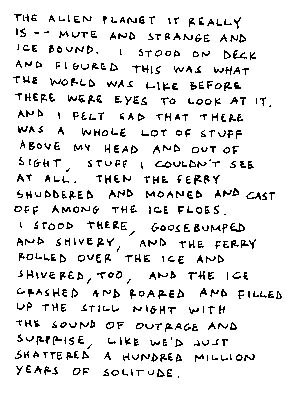 THE ALIEN PLANET IT REALLY
IS -- MUTE AND STRANGE AND
ICE BOUND. I STOOD ON DECK
AND FIGURED THIS WAS WHAT
THE WORLD WAS LIKE BEFORE
THERE WERE EYES TO LOOK AT IT.
AND I FELT SAD THAT THERE
WAS A WHOLE LOT OF STUFF
ABOVE MY HEAD AND OUT OF
SIGHT, STUFF I COULDN'T SEE
AT ALL. THEN THE FERRY
SHUDDERED AND MOANED AND CAST
OFF AMONG THE ICE FLOES.
I STOOD THERE, GOOSEBUMPED
AND SHIVERY, AND THE FERRY
ROLLED OVER THE ICE AND
SHIVERED, TOO, AND THE ICE
CRASHED AND ROARED AND FILLED
UP THE STILL NIGHT WITH
THE SOUND OF OUTRAGE AND
SURPRISE, LIKE WE'D JUST
SHATTERED A HUNDRED MILLION
YEARS OF SOLITUDE.